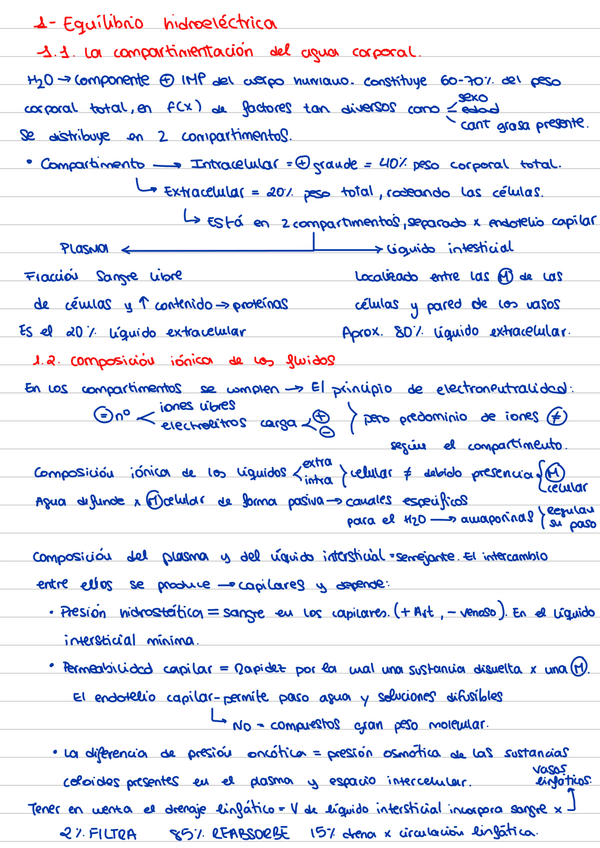 1- Equilibrio hidroeléctrica
1.1. La compartimentación del agua corporal.
H₂O → componente ⊕ IMP del cuerpo humano. constituye 60-70% del peso
corporal total, en f(x) de factores tan diversos como sexo
edad
cant grasa presente.
Se distribuye en 2 compartimentos.
• Compartimento → Intracelular = ⊕ grande = 40% peso corporal total.
↳ Extracelular = 20% peso total, rodeando las células.
↳ Está en 2 compartimentos, separado x endotelio capilar
PLASMA ← → Líquido intesticial
Fracción Sangre libre
de células y ↑ contenido → proteínas
Es el 20% líquido extracelular
Localizado entre las Ⓜ de las
células y pared de los vasos
Aprox. 80% líquido extracelular.
1.2. composición iónica de los fluidos
En los compartimentos se cumplen → El principio de electroneutralidad:
⊜ nº < iones libres
electrolitros carga < ⊕ ⊖ } pero predominio de iones ≠
según el compartimento.
Composición iónica de los líquidos < extra intra } celular ≠ debido presencia { Ⓜ celular
Agua difunde x Ⓜ celular de forma pasiva → canales específicos
para el H₂O → acuaporinas } Regulan su paso
Composición del plasma y del líquido intersticial = semejante. El intercambio
entre ellos se produce → capilares y depende:
• Presión hidrostática = sangre en los capilares. (+ Art, - venoso). En el líquido
intersticial mínima.
• Permeabilidad capilar = Rapidez por la cual una sustancia disuelta x una Ⓜ.
El endotelio capilar - permite paso agua y soluciones difusibles
↳ No = compuestos gran peso molecular.
• La diferencia de presión oncótica = presión osmótica de las sustancias
coloides presentes en el plasma y espacio intercelular.
Tener en cuenta el drenaje linfático = V de líquido intersticial incorpora sangre x vasos linfáticos.
2% FILTRA 85% REABSORBE 15% drena x circulación linfática.